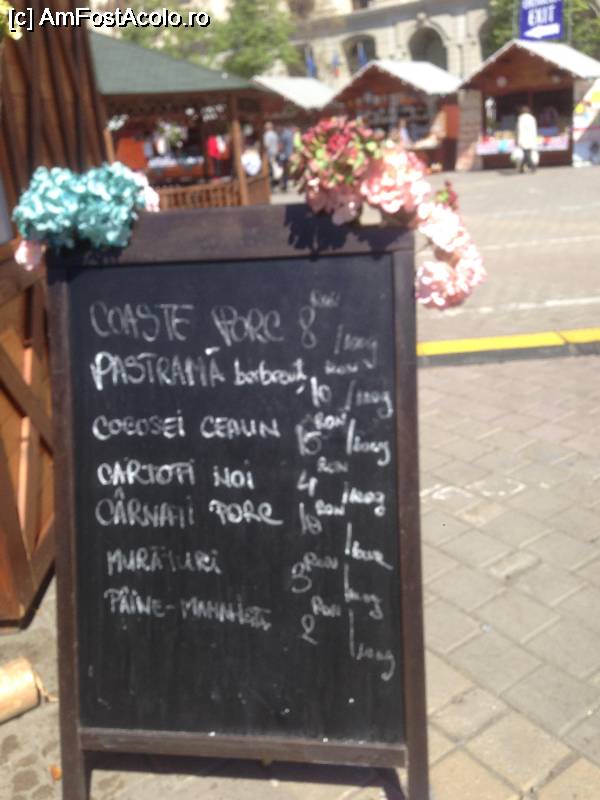 (c) AmFostAcolo.ro
EXIT
COASTE PORC 8 RON /100g
PASTRAMĂ berbecuț 10 RON /100g
COCOSEI CEAUN 15 RON /100g
CARTOFI NOI 4 RON /100g
CÂRNAȚI PORC 10 RON
MURĂTURI 3 RON /100g
PÂINE - 2 RON /100g